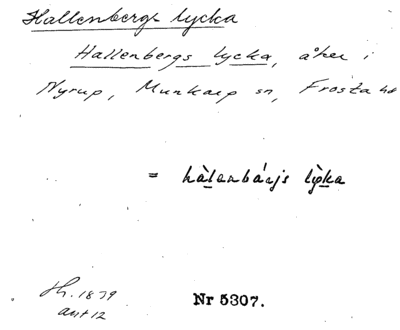 Hallenbergs lycka
Hallenbergs lycka, åker i
Nyrup, Munkarp sn, Frosta hd
= hàlenbárjs lỳka
Hh. 1879
ant 12
Nr 5307.